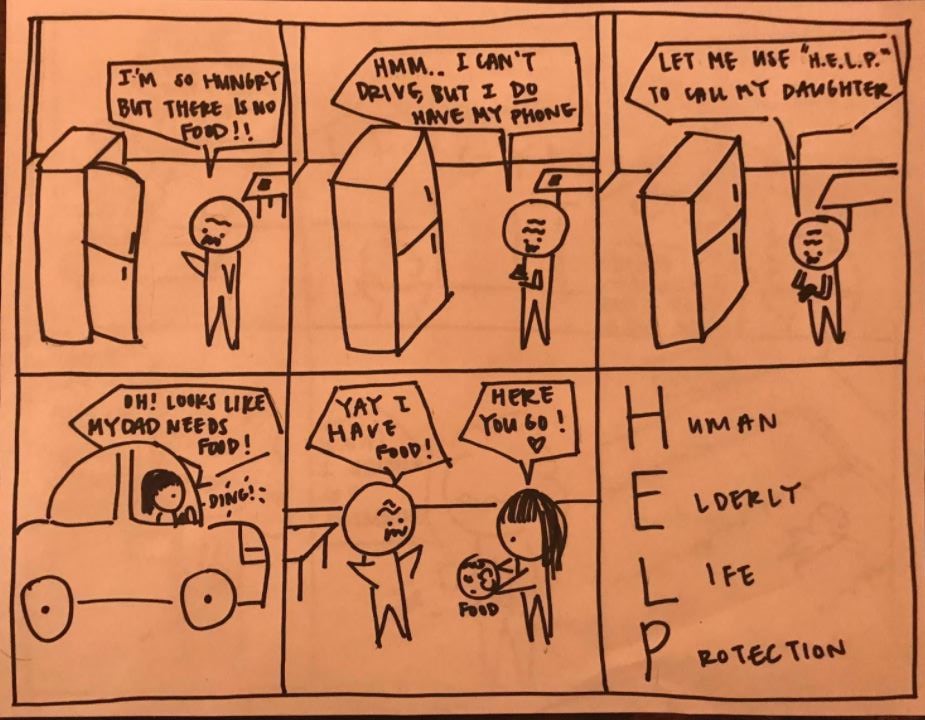 I'M SO HUNGRY
BUT THERE IS NO
FOOD!!
HMM.. I CAN'T
DRIVE, BUT I DO
HAVE MY PHONE
LET ME USE "H.E.L.P."
TO CALL MY DAUGHTER
OH! LOOKS LIKE
MY DAD NEEDS
FOOD!
DING!
YAY I
HAVE
FOOD!
HERE
YOU GO!
FOOD
HUMAN
ELDERLY
LIFE
PROTECTION